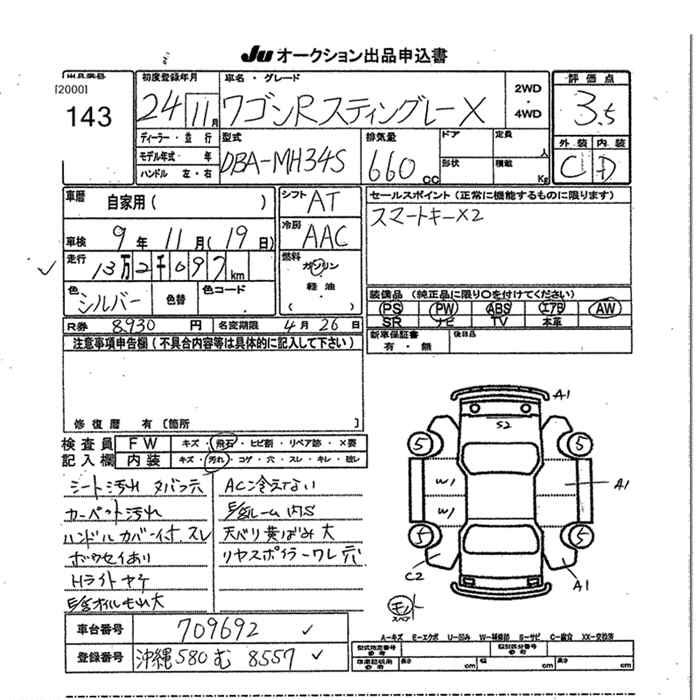 Ju オークション出品申込書
出品番号
[2000]
143
初度登録年月
24 11月
車名・グレード
ワゴンRスティングレーX
2WD
・
4WD
評価点
3.5
外装 内装
C D
ディーラー・並行
モデル年式 年
ハンドル 左・右
型式
DBA-MH34S
排気量
660 cc
ドア
形状
定員
人
積載
Kg
車歴 自家用( )
車検 9年11月(19日)
走行 13万2千097km
色 シルバー
色替
色コード
シフト AT
冷房 AAC
燃料 ガソリン
軽油
( )
セールスポイント(正常に機能するものに限ります)
スマートキーX2
装備品(純正品に限り〇を付けてください)
PS PW ABS エアB AW
SR ナビ TV 本革
新車保証書
有・無
後日品
R券 8930円 名変期限 4月26日
注意事項申告欄(不具合内容等は具体的に記入して下さい)
修復歴 有〔箇所 〕
検査員 FW キズ・飛石・ヒビ割・リペア跡・X要
記入欄 内装 キズ・汚れ・コゲ・穴・スレ・キレ・破レ
シート汚れ タバコ穴
カーペット汚れ
ハンドルカバー付.スレ
ボウセイあり
Hライトヤケ
ACに冷えてない
天ベリ黄ばみ大
リヤスポイラーワレ穴
A1
S2
5
5
W1
W1
A1
5
5
C2
A1
スペア
A-キズ E-エクボ U-凹み W-補修跡 S-サビ C-腐食 XX-交換済
車台番号 709692
登録番号 沖縄580む8557
型式指定番号
類別区分番号
長さ cm 幅 cm 高さ cm